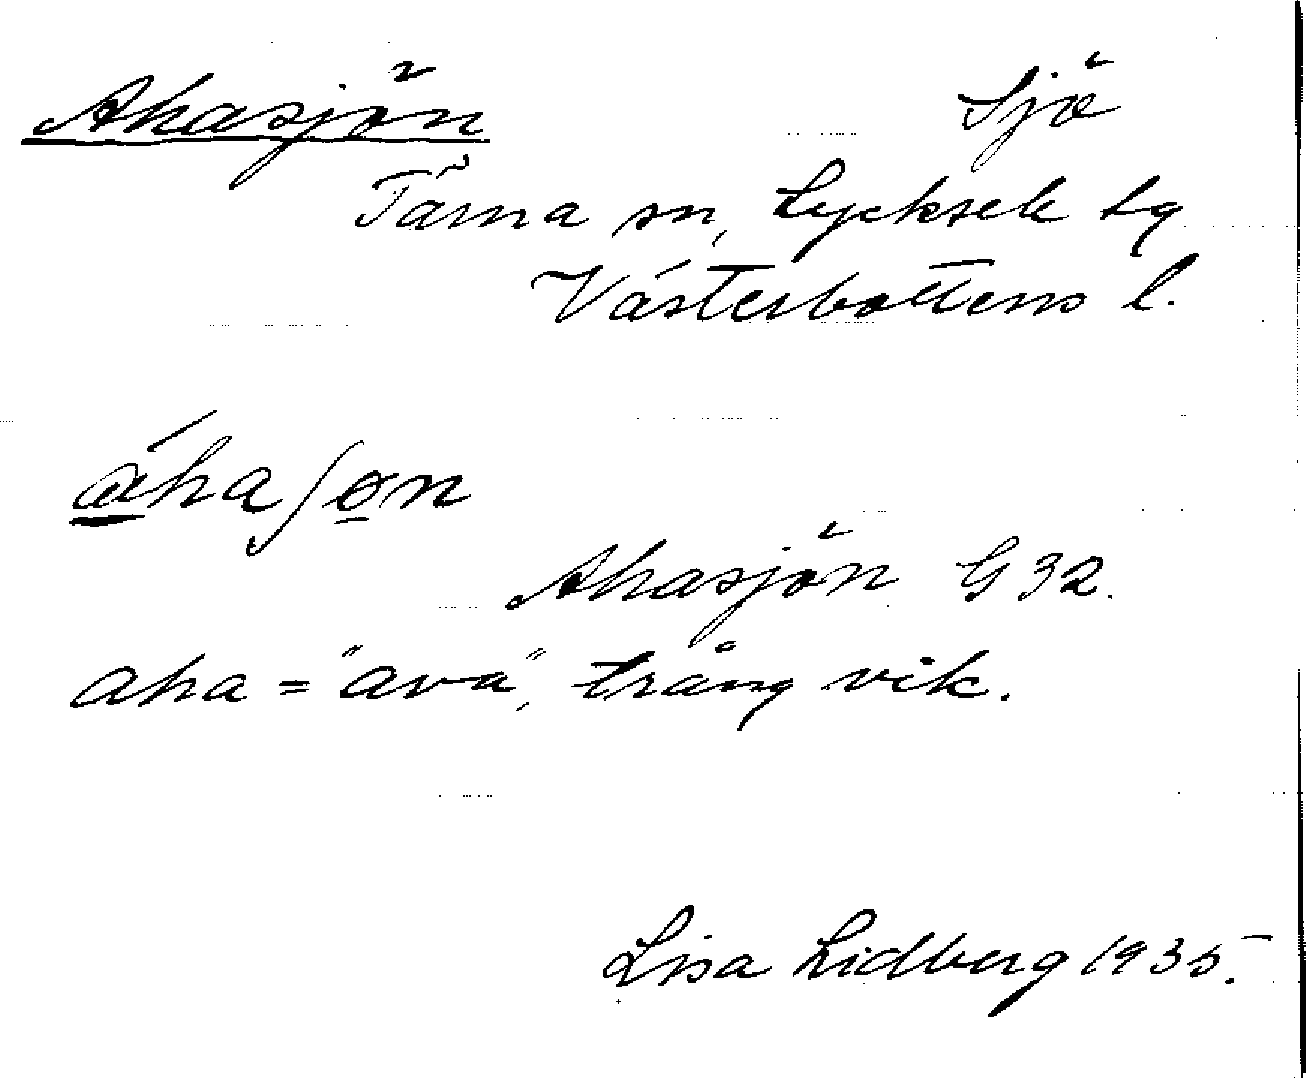 Ahasjön Sjö
Tärna sn, Lycksele tg
Västerbottens l.
áhaʃön
Ahasjön G 32.
aha = "ava", trång vik.
Lisa Lidberg 1935.